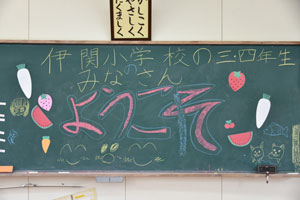 かしこく
やさしく
たくましく
伊関小学校の三・四年生
みなさん
の
ようこそ